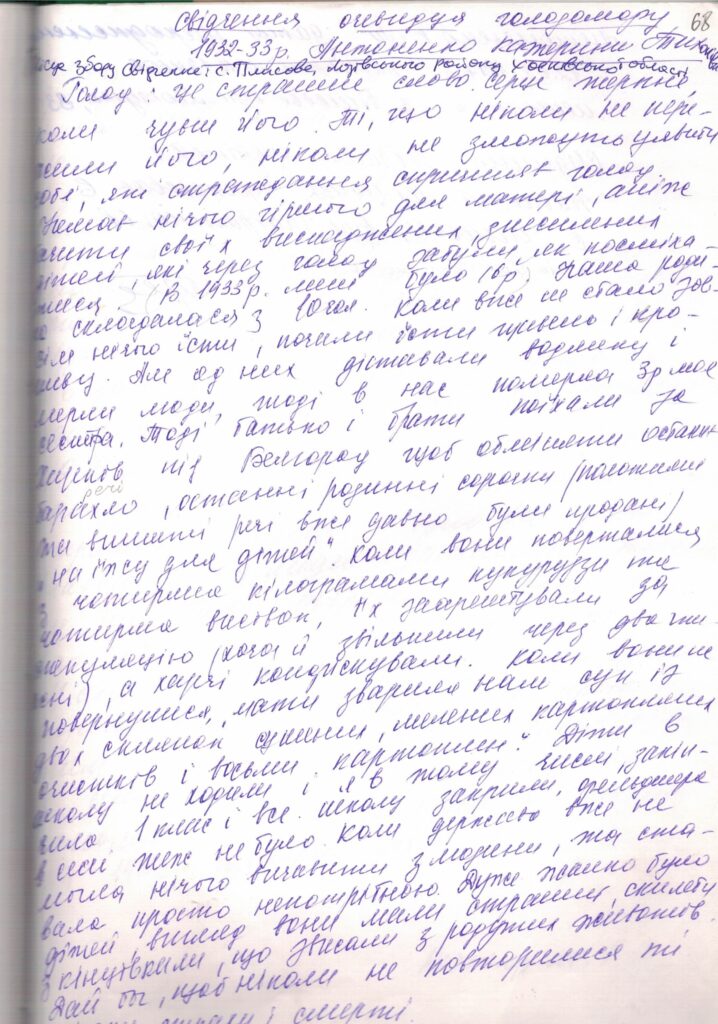 68
Свідчення очевидця голодомору
1932-33р. Антоненко Катерини Тихо
Місце збору свідчення: с. Плисове, Лозівського району Харківської області
Голод! Це страшне слово. серце
коли чуєш його. Ті, що ніколи не пере-
жили його, ніколи не зможуть уявити
собі, які страждання спричиняв голод.
Немає нічого гіршого для матері, аніж
бачити своїх виснажених, знесилених
дітей, які через голод забули як посміха-
тися. (В 1933р. мені було 16р.) Наша роди-
на складалася з 10 чол. Коли вже не стало зов-
сім нічого їсти, почали їсти щавель і кро-
пиву. Але од них діставали водянку і
мерли люди, тоді в нас померла 3р моя
сестра. Тоді батько і брати поїхали за
Харків під Белгород щоб обміняти останнє
речі
барахло, останні родинні сорочки (положили
та вишиті речі вже давно були продані)
"на їжу для дітей". Коли вони поверталися
з чотирма кілограмами кукурудзи та
чотирма вівсом, їх заарештували за
спекуляцію (хоча й звільнили через два ти-
жні), а харчі конфіскували. Коли вони не
повернулися, мати зварила нам суп із
двох склянок мелених картопляних
очистків і восьми картоплин." Діти в
школу не ходили і я в тому числі, закін-
чила 1 клас і все. школу закрили, фельдшера
в селі теж не було. Коли держава вже не
могла нічого вичавити з людини, та ста-
вала просто непотрібною. Дуже жалко було
дітей, вигляд вони мали страшний, скелети
з кінцівками, що звисали з роздутих животів.
Дай бог, щоб ніколи не повторилися ті
страхи і смерті.